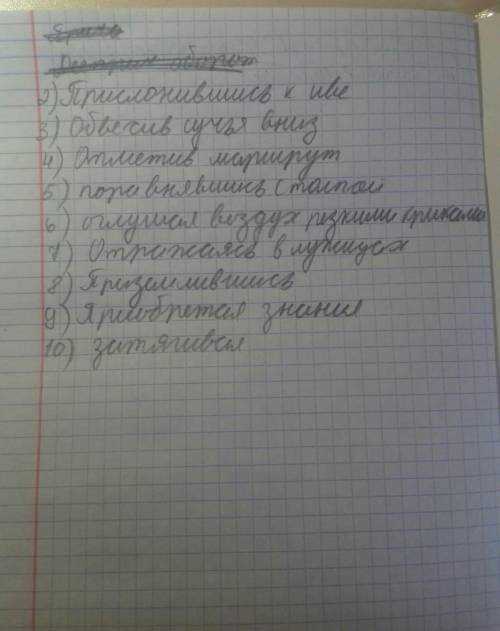 2) Прислонившись к иве
3) Обвесив сучья вниз
4) Отметив маршрут
5) поравнявшись с толпой
6) оглушая воздух резкими криками
7) Отражаясь в лужицах
8) Приземлившись
9) Приобретая знания
10) затягивая